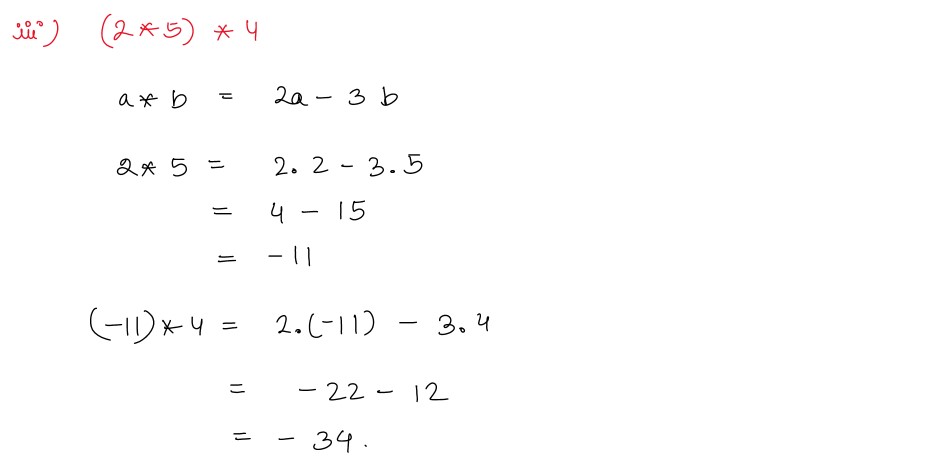 iii) (2 * 5) * 4
a * b = 2a - 3 b
2 * 5 = 2. 2 - 3. 5
= 4 - 15
= -11
(-11) * 4 = 2.(-11) - 3. 4
= -22 - 12
= - 34.